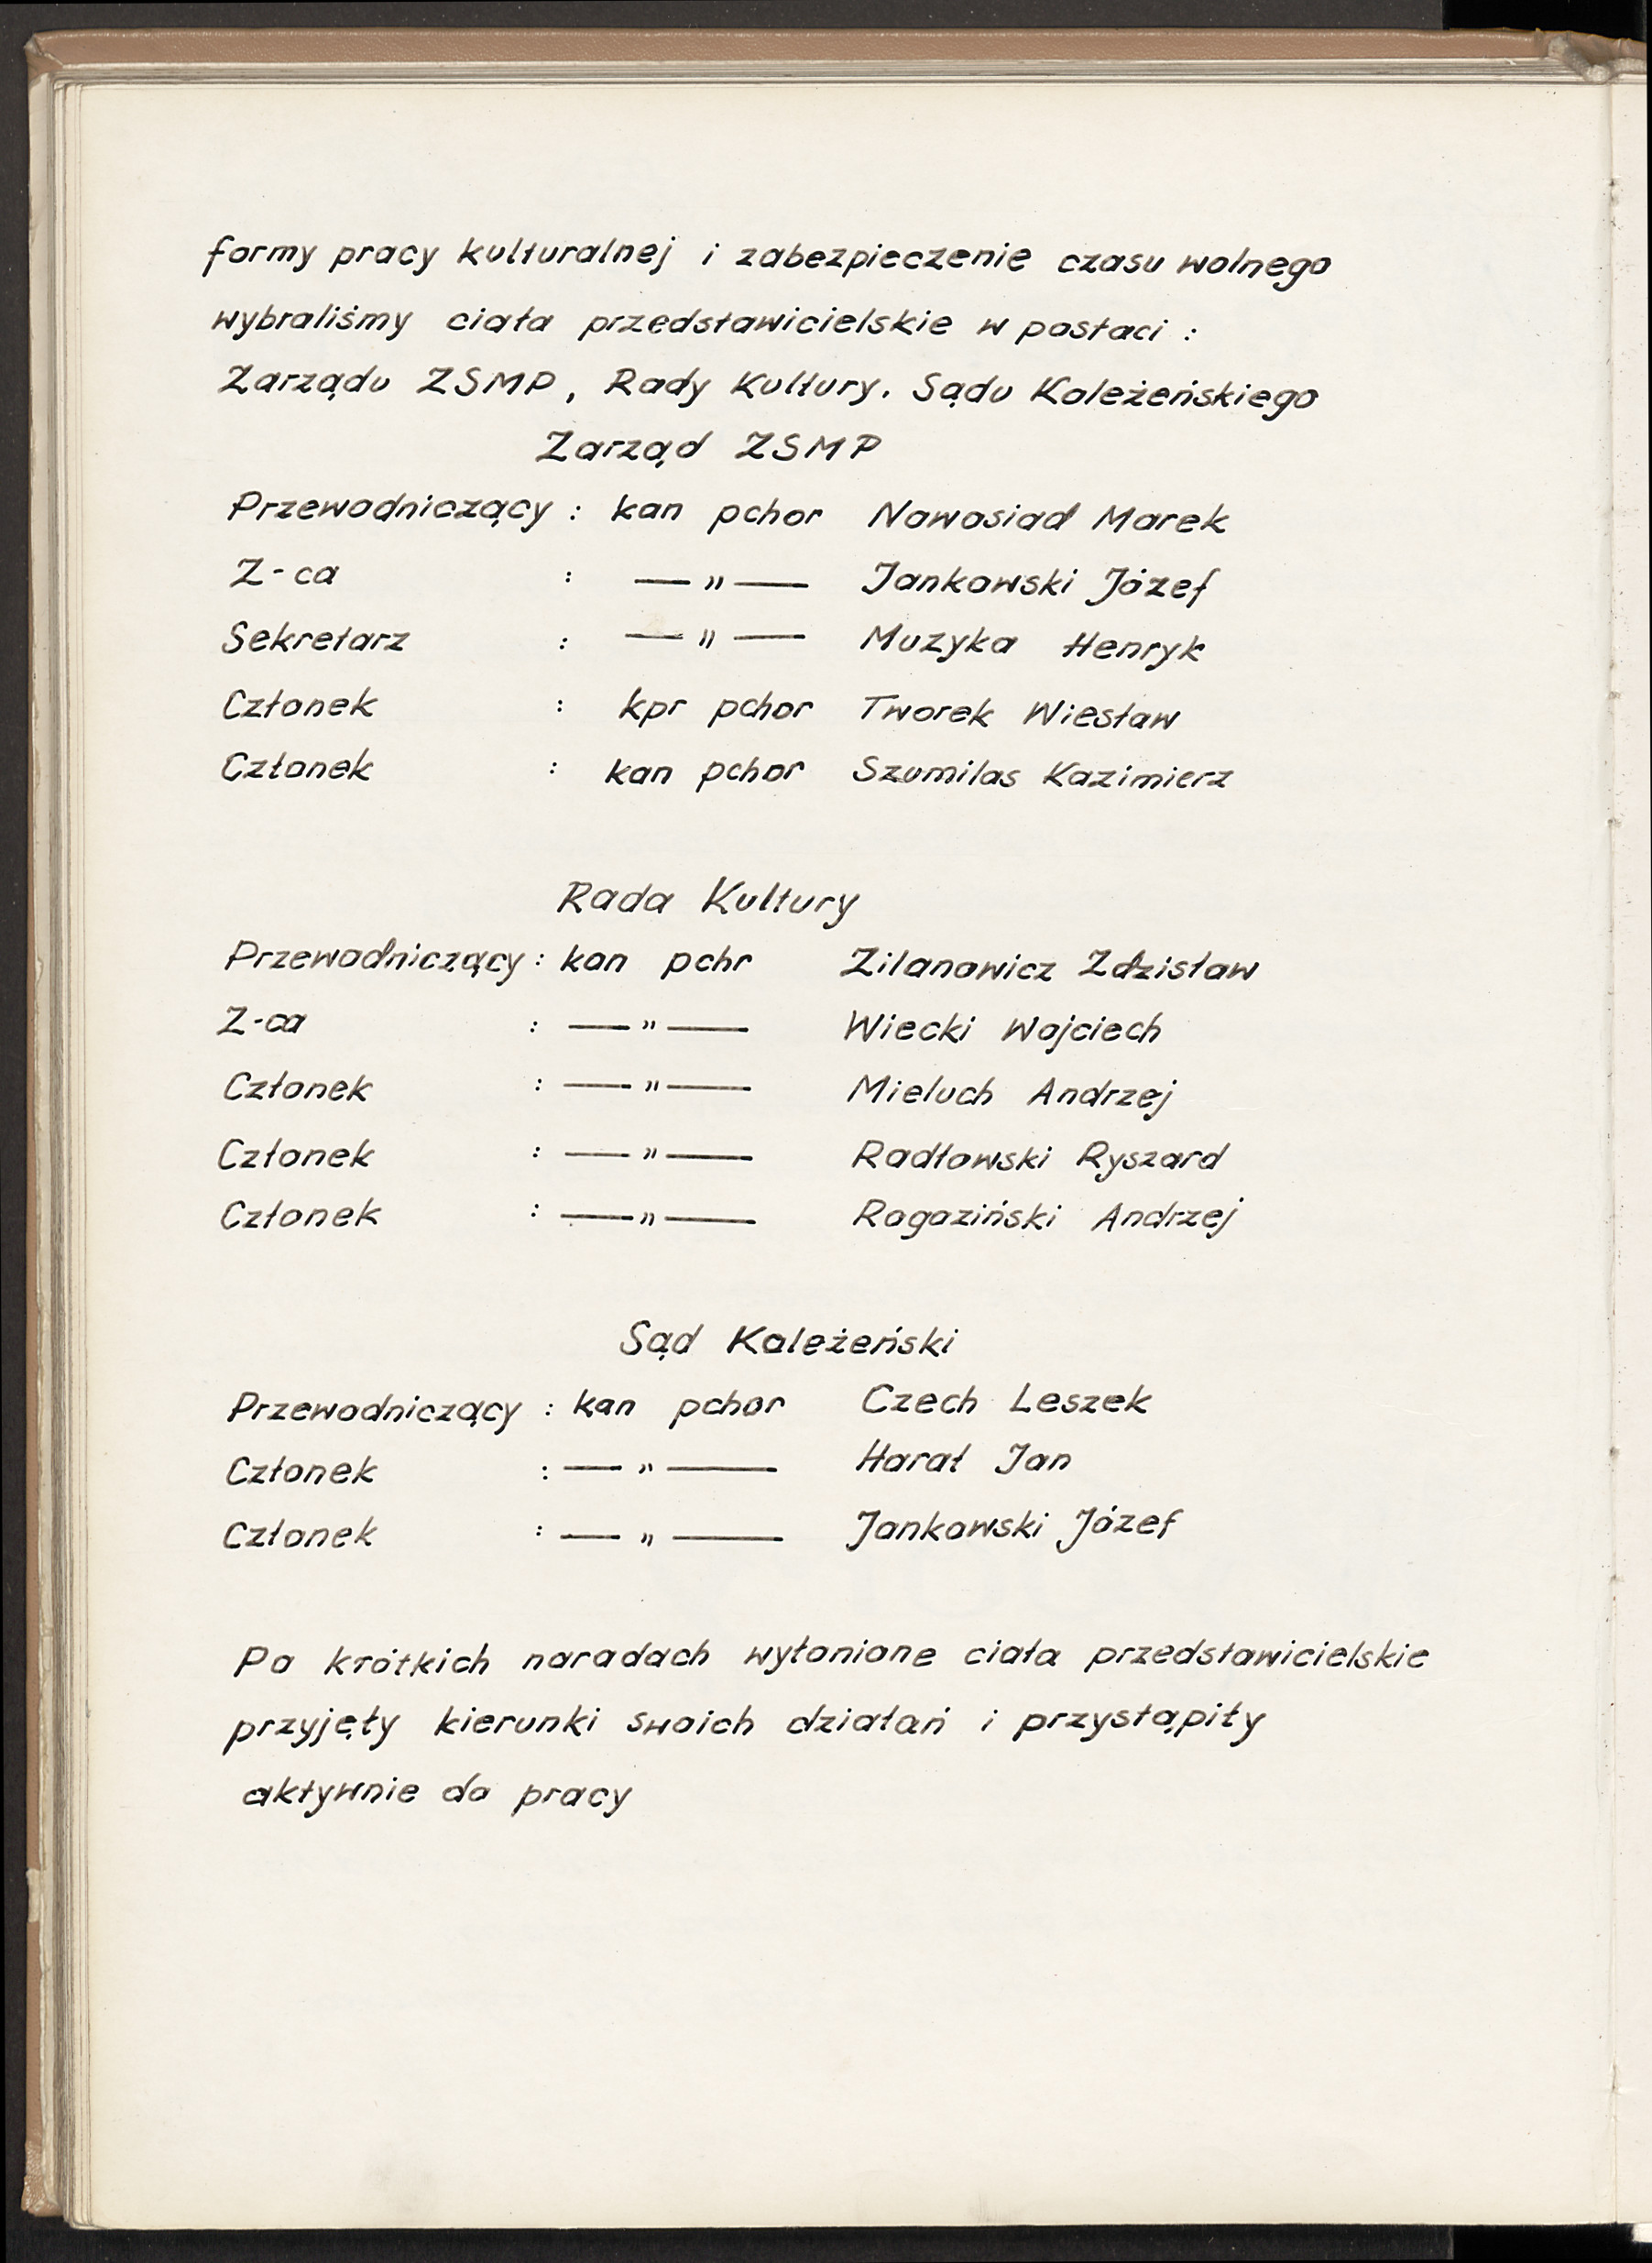 formy pracy kulturalnej i zabezpieczenie czasu wolnego
wybraliśmy ciała przedstawicielskie w postaci :
Zarządu ZSMP, Rady Kultury. Sądu Koleżeńskiego
Zarząd ZSMP
Przewodniczący : kan pchor Nowosiad Marek
Z-ca : — " — Jankowski Józef
Sekretarz : — " — Muzyka Henryk
Członek : kpr pchor Tworek Wiesław
Członek : kan pchor Szumilas Kazimierz
Rada Kultury
Przewodniczący : kan pchr Zilanowicz Zdzisław
Z-ca : — " — Wiecki Wojciech
Członek : — " — Mieluch Andrzej
Członek : — " — Radłowski Ryszard
Członek : — " — Rogoziński Andrzej
Sąd Koleżeński
Przewodniczący : kan pchor Czech Leszek
Członek : — " — Harał Jan
Członek : — " — Jankowski Józef
Po krótkich naradach wyłonione ciała przedstawicielskie
przyjęły kierunki swoich działań i przystąpiły
aktywnie do pracy